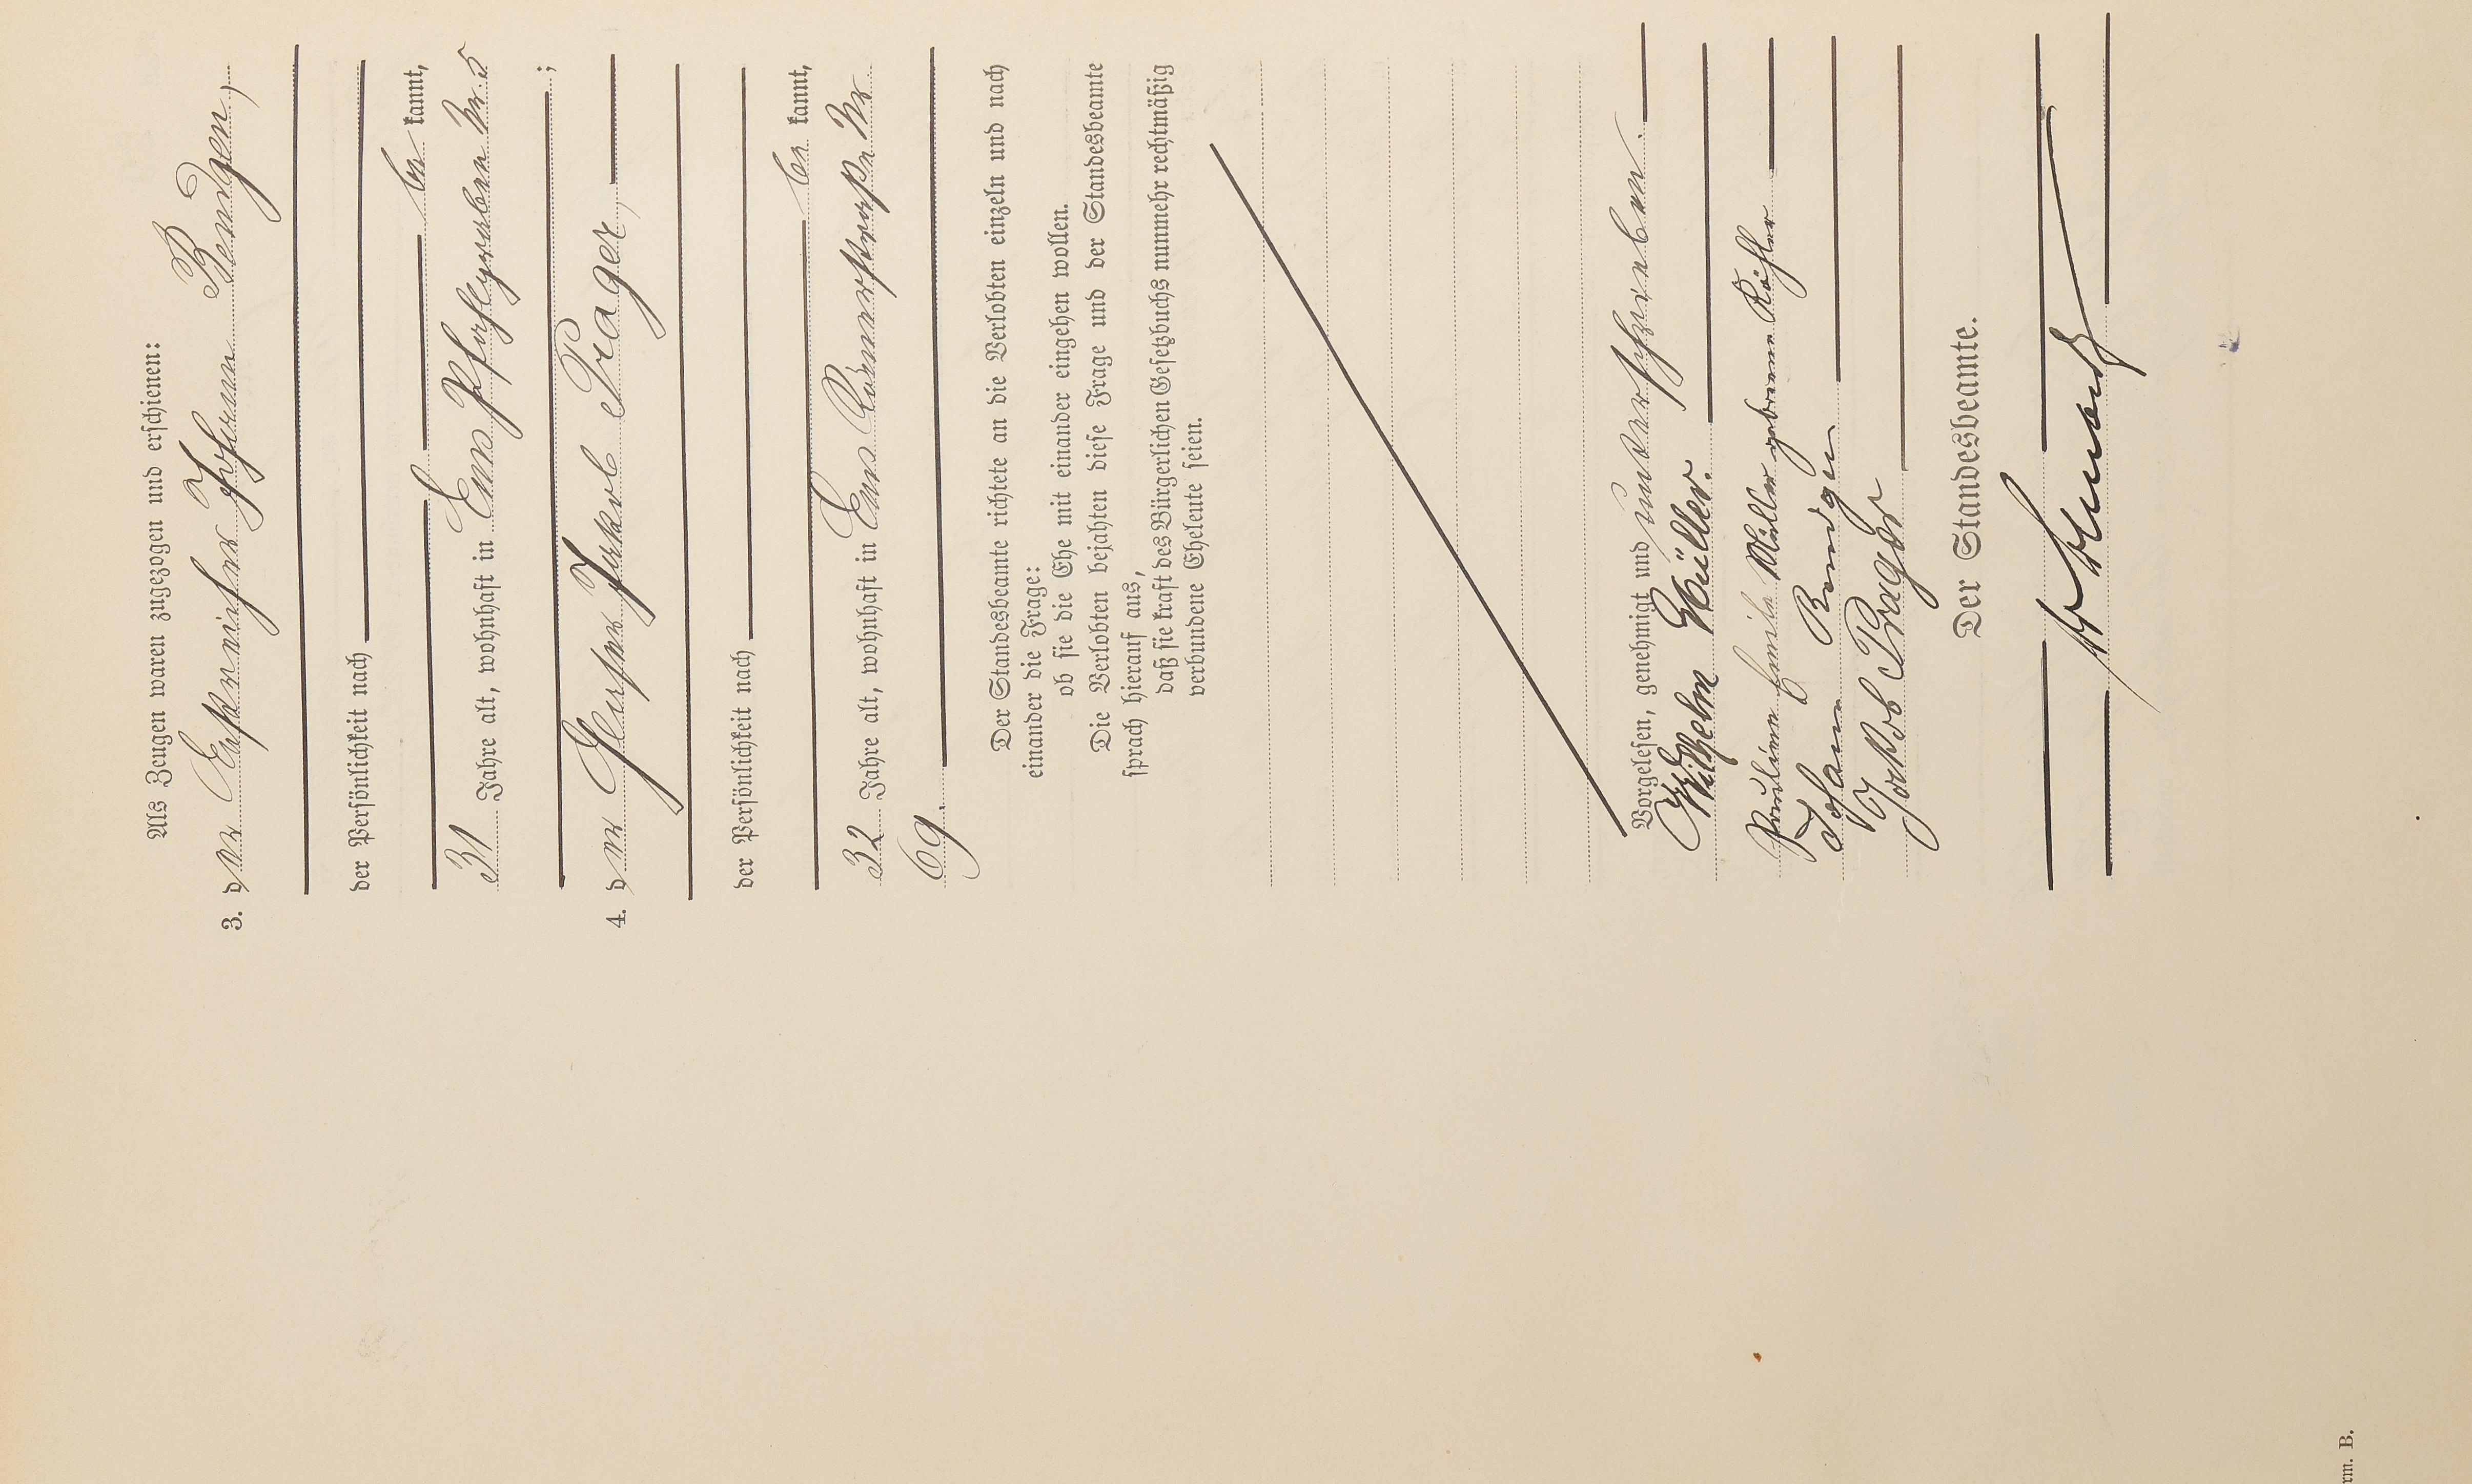 Als Zeugen waren zugezogen und erschienen:
3. der Johann Bendgen,
der Persönlichkeit nach
be kannt,
31 Jahre alt, wohnhaft in Ems Pfahlgraben Nr 5
;
4. der Glaser Jakob Prager,
der Persönlichkeit nach
be kannt,
32 Jahre alt, wohnhaft in Ems Römerstraße Nr
69.
Der Standesbeamte richtete an die Verlobten einzeln und nach
einander die Frage:
ob sie die Ehe mit einander eingehen wollen.
Die Verlobten bejahten diese Frage und der Standesbeamte
sprach hierauf aus,
daß sie kraft des Bürgerlichen Gesetzbuchs nunmehr rechtmäßig
verbundene Eheleute seien.
Vorgelesen, genehmigt und unterschrieben.
Wilhelm Müller.
Pauline Emilie Müller geborene Köhler
Johann Bendgen
Jakob Prager
Der Standesbeamte.
rm. B.